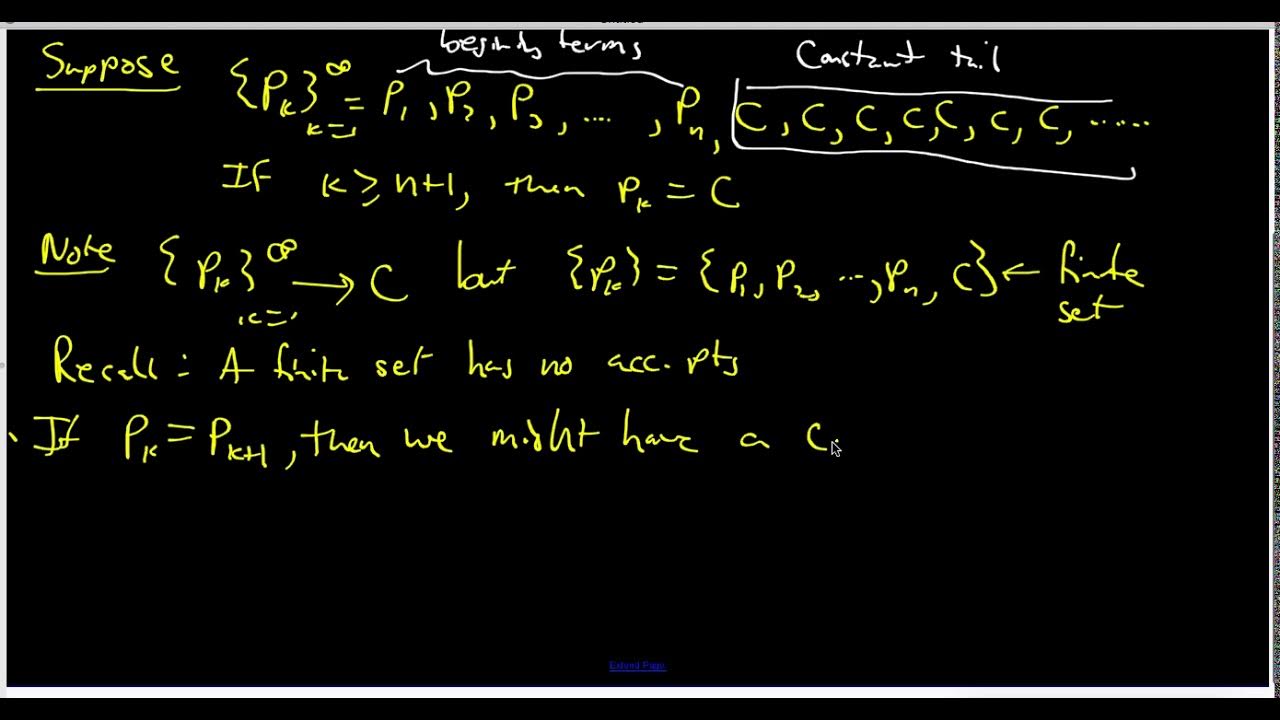 beginning terms
Constant tail
Suppose {P_k}_{k=1}^∞ = P_1, P_2, P_3, ...., P_n, C, C, C, C, C, C, C, .......
If k ≥ n+1, then P_k = C
Note {P_k}_{k=1}^∞ → C but {P_k} = {P_1, P_2, ..., P_n, C} ← finite set
Recall: A finite set has no acc. pts
If P_k = P_{k+1}, then we might have a C
Extend Page